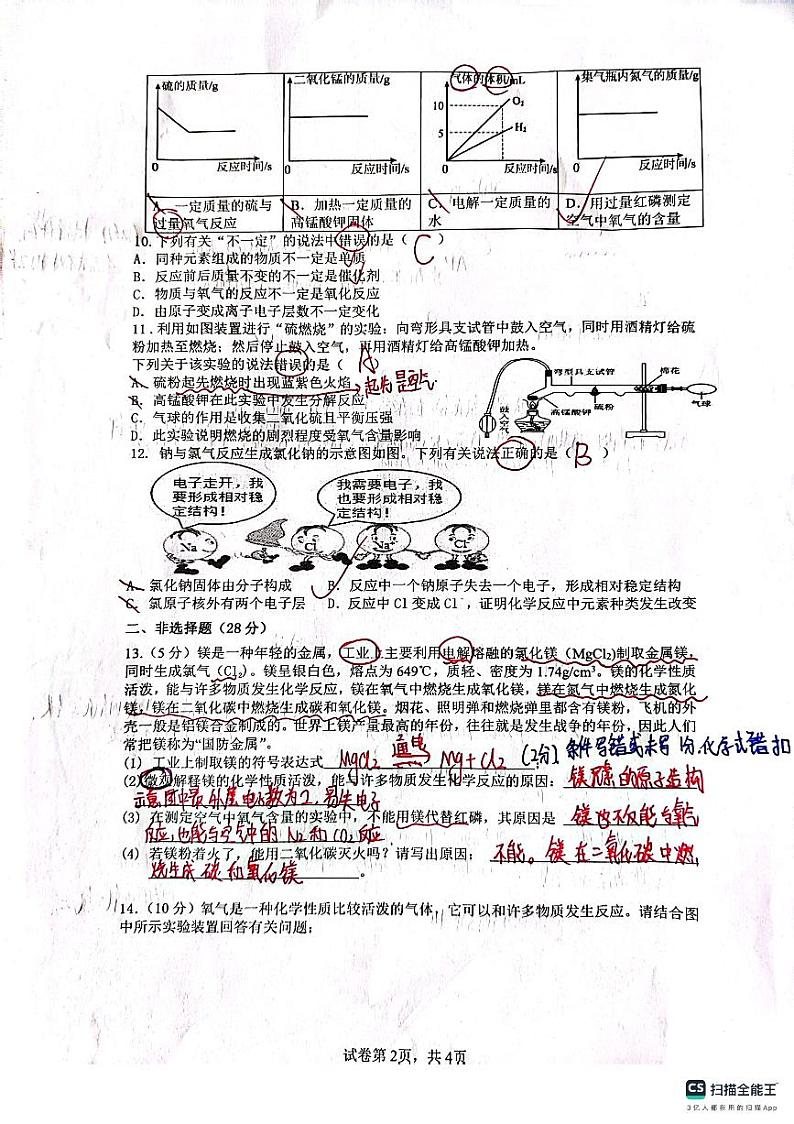 硫的质量/g
二氧化锰的质量/g
气体的体积/mL
集气瓶内氮气的质量/g
10
5
O₂
H₂
0 反应时间/s
0 反应时间/s
0 反应时间/s
0 反应时间/s
A. 一定质量的硫与过量氧气反应
B. 加热一定质量的高锰酸钾固体
C. 电解一定质量的水
D. 用过量红磷测定空气中氧气的含量
10. 下列有关“不一定”的说法中错误的是（ C ）
A. 同种元素组成的物质不一定是单质
B. 反应前后质量不变的不一定是催化剂
C. 物质与氧气的反应不一定是氧化反应
D. 由原子变成离子电子层数不一定变化
11.利用如图装置进行“硫燃烧”的实验：向弯形具支试管中鼓入空气，同时用酒精灯给硫
粉加热至燃烧；然后停止鼓入空气，再用酒精灯给高锰酸钾加热。
下列关于该实验的说法错误的是（ A
A. 硫粉起先燃烧时出现蓝紫色火焰
B. 高锰酸钾在此实验中发生分解反应
C. 气球的作用是收集二氧化硫且平衡压强
D. 此实验说明燃烧的剧烈程度受氧气含量影响
弯型具支试管
棉花
鼓入空气
高锰酸钾
硫粉
气球
12. 钠与氯气反应生成氯化钠的示意图如图。下列有关说法正确的是（ B ）
电子走开，我
要形成相对稳
定结构！
我需要电子，我
也要形成相对稳
定结构！
Na
Cl
Na⁺
Cl⁻
A. 氯化钠固体由分子构成 B. 反应中一个钠原子失去一个电子，形成相对稳定结构
C. 氯原子核外有两个电子层 D. 反应中 Cl 变成 Cl⁻，证明化学反应中元素种类发生改变
二、非选择题（28 分）
13.（5 分）镁是一种年轻的金属，工业上主要利用电解熔融的氯化镁（MgCl2)制取金属镁，
同时生成氯气（Cl₂）。镁呈银白色，熔点为 649℃，质轻、密度为 1.74g/cm³。镁的化学性质
活泼，能与许多物质发生化学反应，镁在氧气中燃烧生成氧化镁，镁在氮气中燃烧生成氮化
镁，镁在二氧化碳中燃烧生成碳和氧化镁。烟花、照明弹和燃烧弹里都含有镁粉，飞机的外
壳一般是铝镁合金制成的。世界上镁产量最高的年份，往往就是发生战争的年份，因此人们
常把镁称为“国防金属”。
(1) 工业上制取镁的符号表达式 MgCl2 通电 Mg+Cl2 (2分). 条件写错或未写1分,化学式错扣
(2)微观解释镁的化学性质活泼，能与许多物质发生化学反应的原因： 镁元素的原子结构
示意图中最外层电子数为2，易失电子
(3) 在测定空气中氧气含量的实验中，不能用镁代替红磷，其原因是 镁它不仅能与氧气
反应,也能与空气中的N2和CO2反应
(4) 若镁粉着火了，能用二氧化碳灭火吗？请写出原因： 不能。镁在二氧化碳中燃
烧生成碳和氧化镁。
14.（10 分）氧气是一种化学性质比较活泼的气体，它可以和许多物质发生反应。请结合图
中所示实验装置回答有关问题；
试卷第 2页，共 4页
CS 扫描全能王
3亿人都在用的扫描App